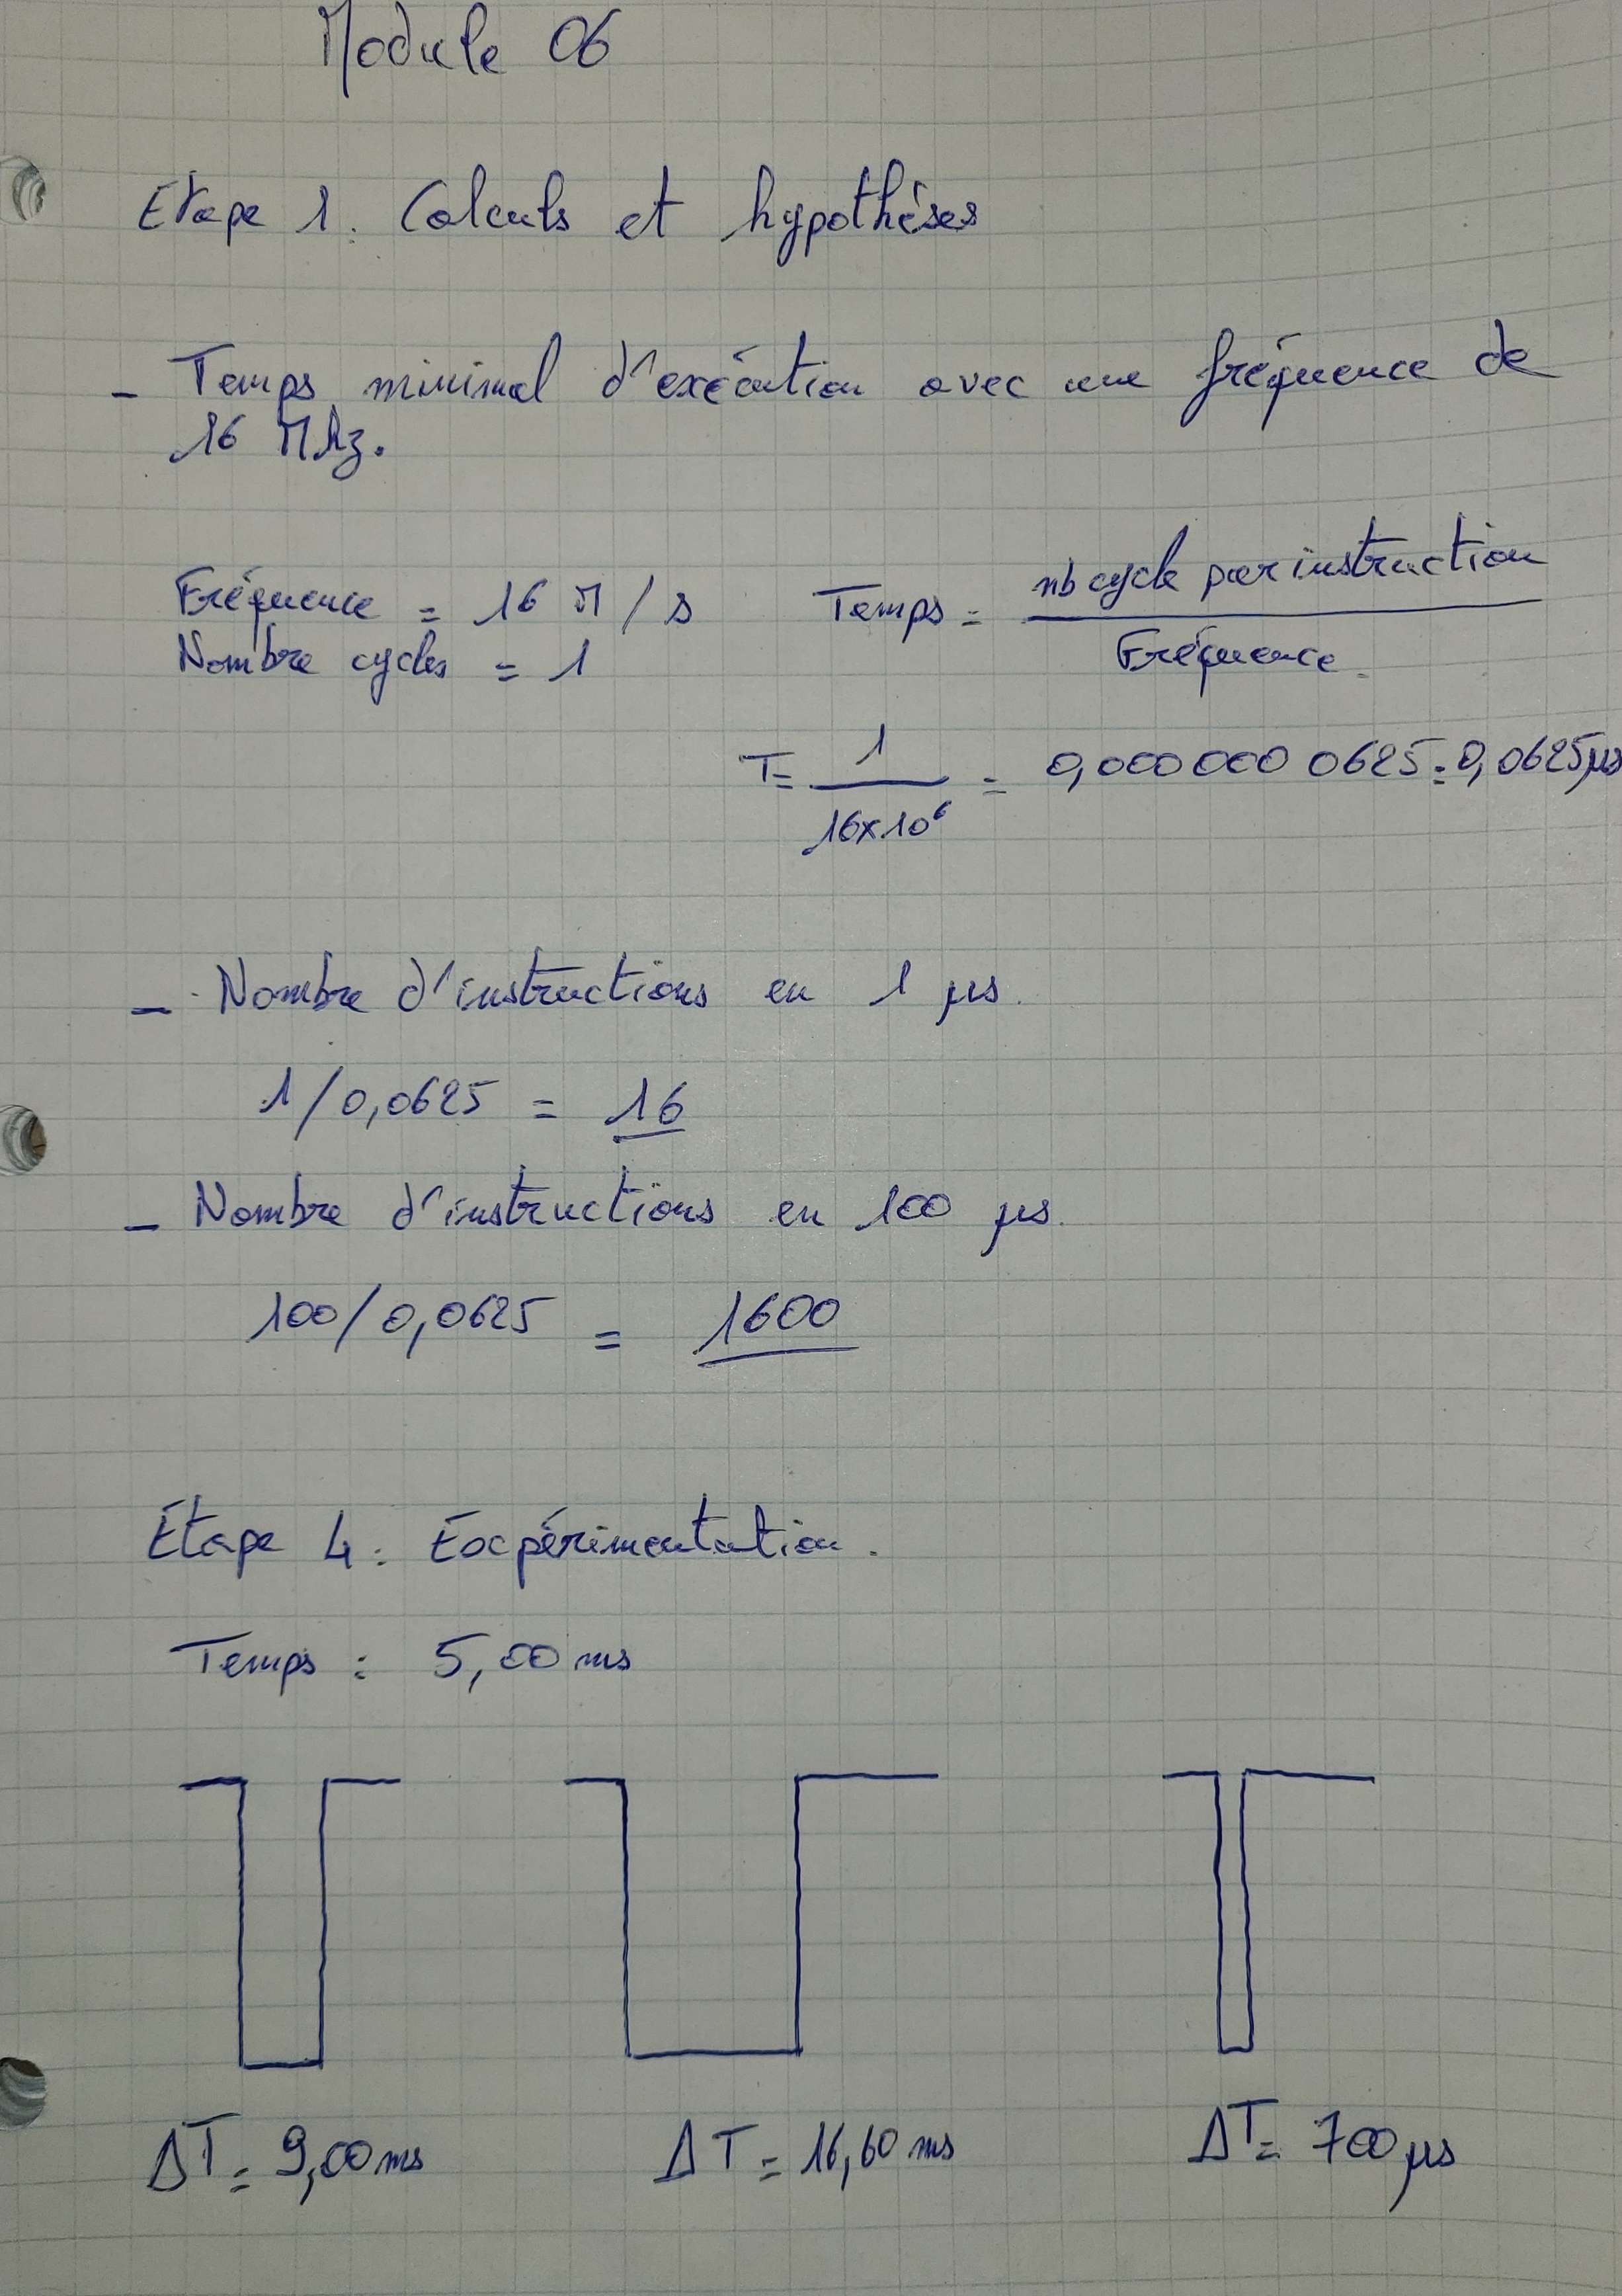 Module 06
Etape 1 : Calculs et hypothèses
- Temps minimal d'exécution avec une fréquence de
16 MHz.
Fréquence = 16 M / s
Nombre cycles = 1
Temps = nb cycle par instruction
Fréquence
T = 1 / 16×10⁶ = 0,000 000 0625 = 0,0625 µs
- Nombre d'instructions en 1 µs.
1 / 0,0625 = 16
- Nombre d'instructions en 100 µs.
100 / 0,0625 = 1600
Etape 4 : Expérimentation.
Temps : 5,00 ms
ΔT = 9,00 ms ΔT = 16,60 ms ΔT = 700 µs